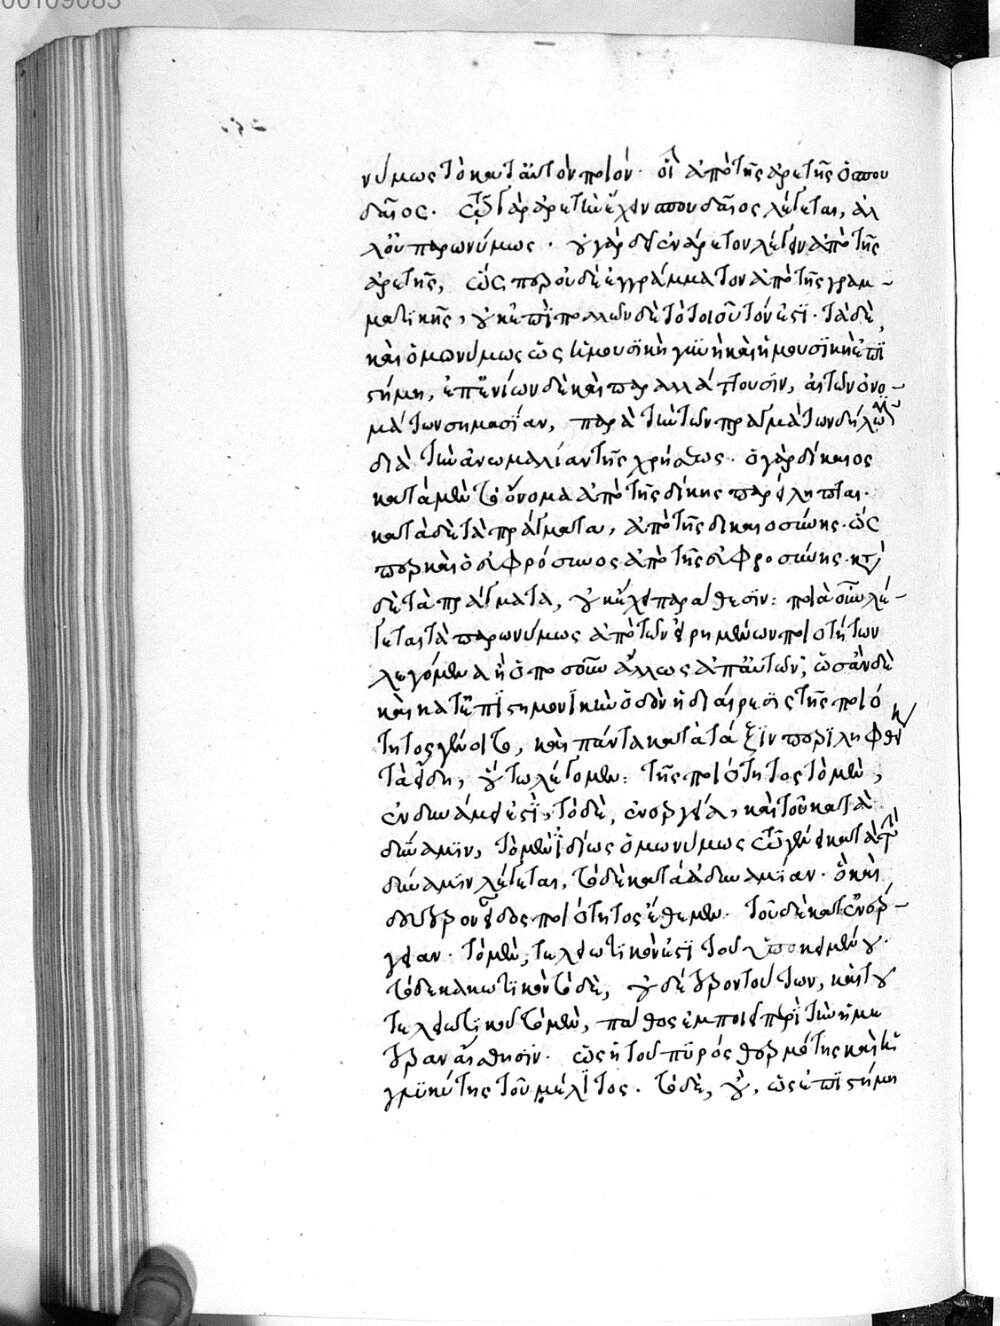 00109083
νύμως τὸ κατ' αὐτὸν ποιόν. οἷον ἀπὸ τῆς ἀρετῆς ὁ σπου
δαῖος. τῷ γὰρ ἀρετὴν ἔχειν σπουδαῖος λέγεται, ἀλ
λ' οὐ παρωνύμως. οὐ γὰρ δεῖ ἐνάρετον λέγειν ἀπὸ τῆς
ἀρετῆς, ὥσπερ οὐδὲ ἐγγράμματον ἀπὸ τῆς γραμ-
ματικῆς, οὐκ ἐπὶ πολλῶν δὲ τὸ τοιοῦτόν ἐστι. τὰ δὲ
καὶ ὁμωνύμως ὡς ἡ μουσικὴ γυνὴ καὶ ἡ μουσικὴ ἐπι
στήμη, ἐπ' ἐνίων δὲ καὶ παραλλάττουσιν, αἱ τῶν ὀνο-
μάτων σημασίαι, παρὰ τὴν τῶν πραγμάτων δήλωσιν
διὰ τὴν ἀνωμαλίαν τῆς χρήσεως. ὁ γὰρ δίκαιος
κατὰ μὲν τὸ ὄνομα ἀπὸ τῆς δίκης παρείληπται.
κατὰ δὲ τὰ πράγματα, ἀπὸ τῆς δικαιοσύνης. ὥς
περ καὶ ὁ σώφρόσυνος ἀπὸ τῆς σωφροσύνης. κατὰ
δὲ τὰ πράγματα, οὐκ ἔχει παράθεσιν: ποιὰ οὖν λέ-
γεται τὰ παρωνύμως ἀπὸ τῶν εἰρημένων ποιοτήτων
λεγόμενα ἢ ὁπωσοῦν ἄλλως ἀπ' αὐτῶν, ὡς ἂν δὲ
καὶ κατ' ἐπιστημονικὴν ὁδὸν ἡ διαίρεσις τῆς ποιό
τητος γένοιτο, καὶ πάντα κατὰ τάξιν περιληφθείη
τὰ εἴδη, οὕτω λέγομεν: τῆς ποιότητος τὸ μὲν,
ἐν δυνάμει ἐστί, τὸ δὲ, ἐνεργείᾳ, καὶ τοῦ κατὰ
δύναμιν, τὸ μὲν ἰδίως ὁμωνύμως τῷ γένει κατὰ τὸ
δύναμιν λέγεται, τὸ δὲ κατὰ ἀδυναμίαν. ὃ καὶ
δεύτερον εἶδος ποιότητος ἐθέμεθα. τοῦ δὲ κατ' ἐνέρ-
γειαν. τὸ μὲν, τελειωτικόν ἐστι τοῦ ὑποκειμένου.
τὸ δὲ κακωτικὸν τὸ δὲ, οὐδέτερον τούτων, καὶ τοῦ
τελειωτικοῦ τὸ μὲν, πάθος ἐμποιεῖ περὶ τὴν ἡμε
τέραν αἴσθησιν. ὡς ἡ τοῦ πυρὸς θερμότης καὶ ἡ
γλυκύτης τοῦ μέλιτος. τὸ δὲ, οὔ, ὡς ἐπιστήμη